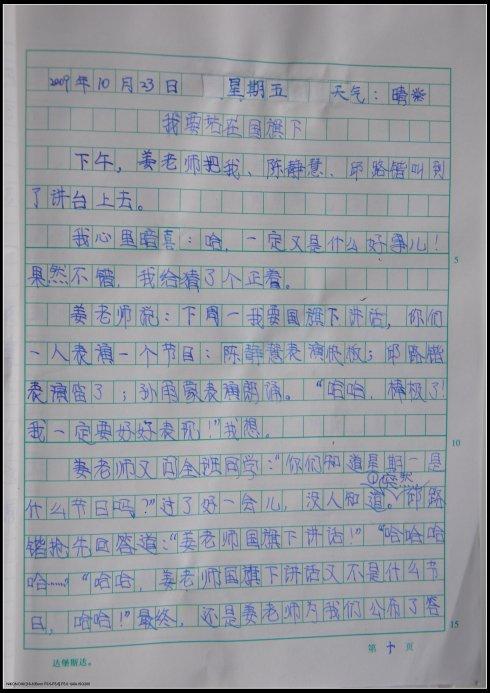 2009年10月23日 星期五 天气：晴
我要站在国旗下
下午，姜老师把我、陈静慧、邱路锴叫到
了讲台上去。
我心里暗喜：哈，一定又是什么好事儿！
果然不错，我给猜了个正着。
姜老师说：下周一我要国旗下讲话，你们
一人表演一个节目：陈静慧表演快板；邱路锴
表演笛子；孙雨蒙表演朗诵。“哈哈，棒极了！
我一定要好好表现！”我想。
姜老师又问全班同学：“你们知道星期一是
什么节日吗？”过了好一会儿，没人知道。邱路
锴抢先回答道：“姜老师国旗下讲话！”“哈哈哈
哈……”“哈哈，姜老师国旗下讲话又不是什么节
日，哈哈！”最终，还是姜老师为我们公布了答
5
10
15
达堡斯达。
第十页